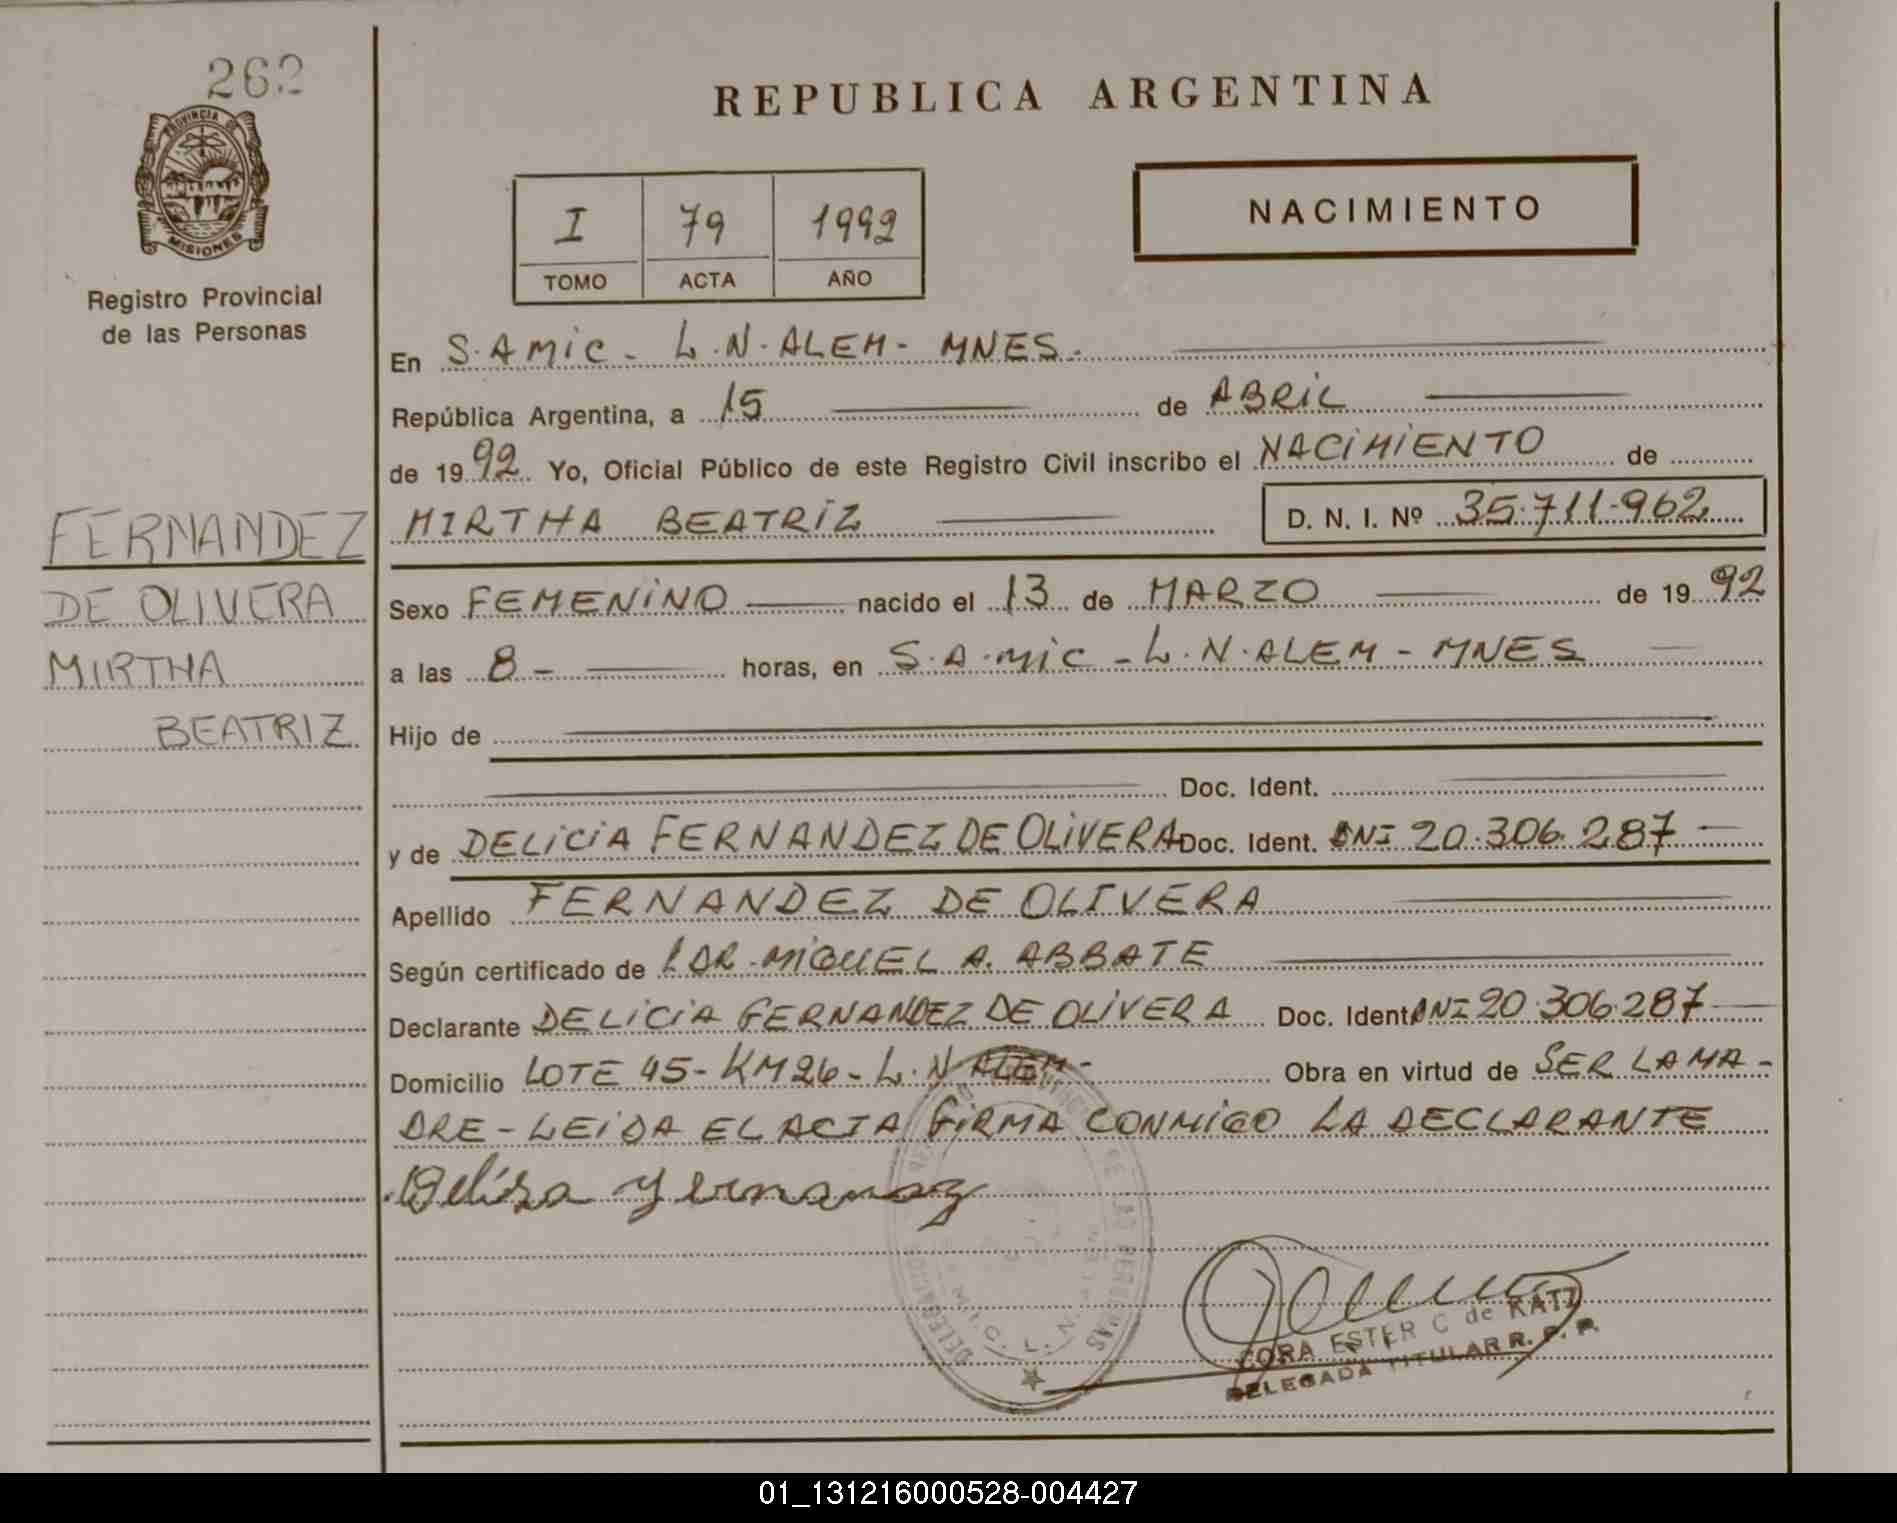 262
PROVINCIA DE
MISIONES
Registro Provincial
de las Personas
FERNANDEZ
DE OLIVERA
MIRTHA
BEATRIZ
REPUBLICA ARGENTINA
I 79 1992
TOMO ACTA AÑO
NACIMIENTO
En S.AMIC - L.N.ALEM - MNES.
República Argentina, a 15 de ABRIL
de 1992 Yo, Oficial Público de este Registro Civil inscribo el NACIMIENTO de
MIRTHA BEATRIZ D. N. I. Nº 35.711.962
Sexo FEMENINO nacido el 13 de MARZO de 1992
a las 8 - horas, en S.A.MIC - L.N.ALEM - MNES
Hijo de
Doc. Ident.
y de DELICIA FERNANDEZ DE OLIVERA Doc. Ident. DNI 20.306.287
Apellido FERNANDEZ DE OLIVERA
Según certificado de DR. MIGUEL A. ABBATE
Declarante DELICIA FERNANDEZ DE OLIVERA Doc. Ident. DNI 20.306.287
Domicilio LOTE 45 - KM26 - L.N ALEM - Obra en virtud de SER LA MA-
DRE - LEIDA EL ACTA FIRMA CONMIGO LA DECLARANTE
CORA ESTER C de RATI
DELEGADA TITULAR R. P. P.
01_131216000528-004427